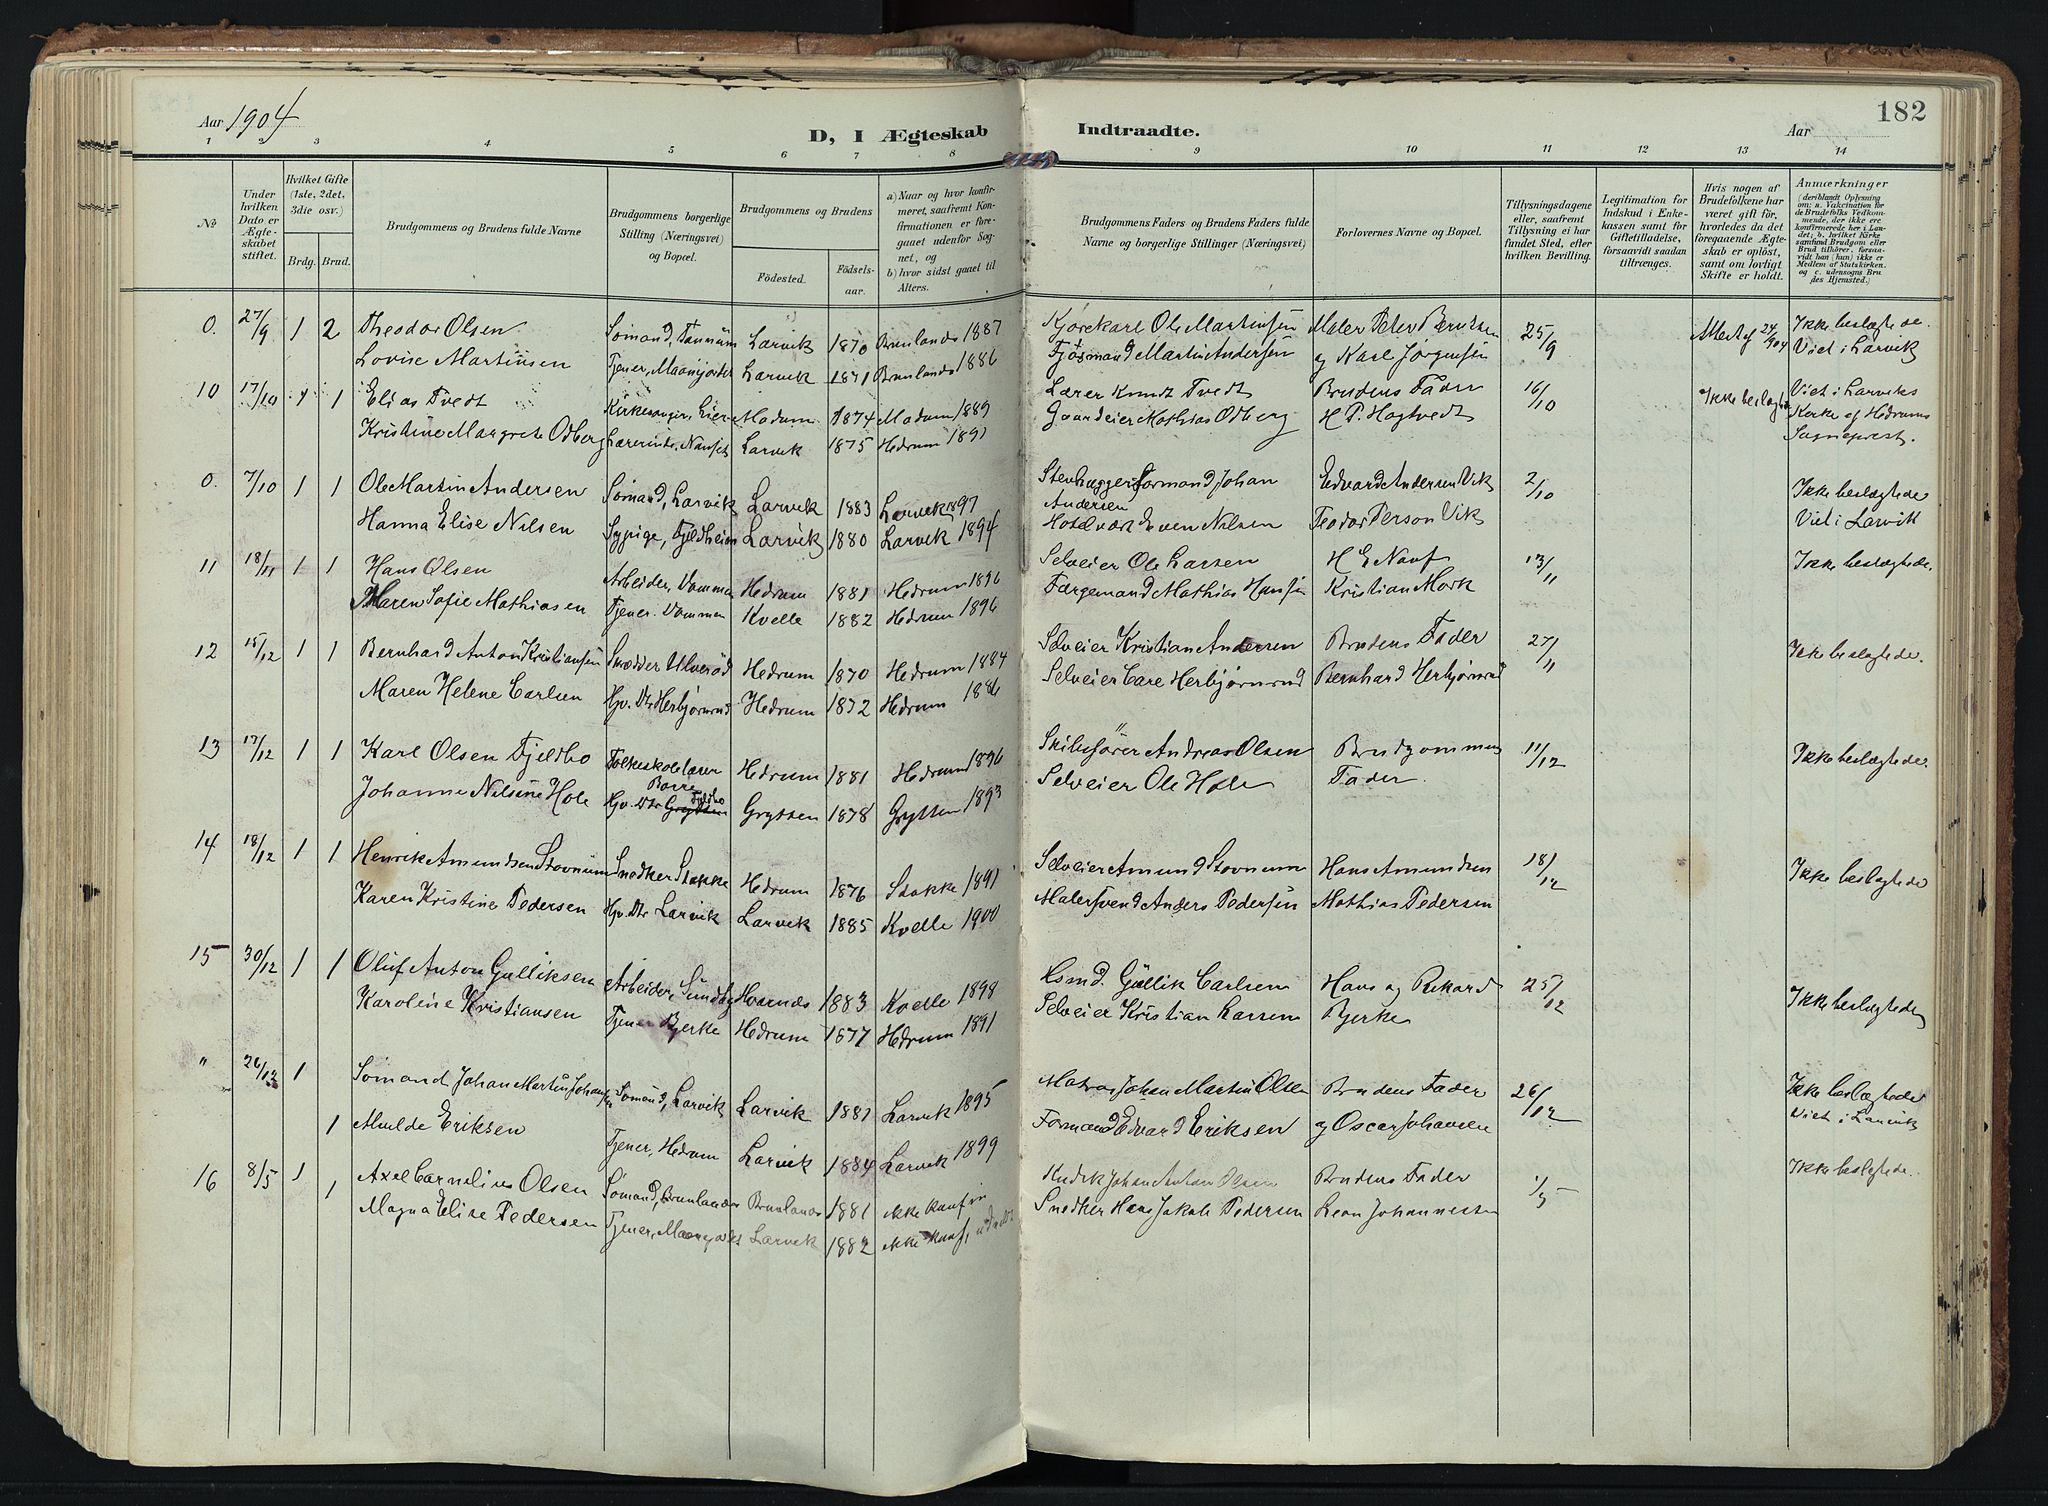 182
Aar 1904
D, I Ægteskab Indtraadte.
Aar
1 2 3 4 5 6 7 8 9 10 11 12 13 14
No
Under hvilken Dato er Ægteskabet stiftet.
Hvilket Gifte (1ste, 2det, 3die osv.)
Brdg. Brud.
Brudgommens og Brudens fulde Navne
Brudgommens borgerlige Stilling (Næringsvei) og Bopæl.
Brudgommens og Brudens
Fødested. Fødselsaar.
a) Naar og hvor konfirmeret, saafremt Konfirmationen er foregaaet udenfor Sognet, og b) hvor sidst gaaet til Alters.
Brudgommens Faders og Brudens Faders fulde Navne og borgerlige Stillinger (Næringsvei)
Forlovernes Navne og Bopæl.
Tillysningsdagene eller, saafremt Tillysning ei har fundet Sted, efter hvilken Bevilling.
Legitimation for Indskud i Enkekassen samt for Giftetilladelse, forsaavidt saadan tiltrænges.
Hvis nogen af Brudefolkene har været gift før, hvorledes da det foregaaende Ægteskab er opløst, samt om lovligt Skifte er holdt.
Anmærkninger (deriblandt Oplysning om: a. Vakcination for de Brudefolks Vedkommende, der ikke ere konfirmerede her i Landet; b. hvilket Kirkesamfund Brudgom eller Brud tilhører, forsaavidt han (hun) ikke er Medlem af Statskirken, og c. udensogns Brudes Hjemsted.)
0. 27/9 1 2 Theodor Olsen Sømand, Larvik 1870 Brunlanes 1887 Kjørekarl Ole Martinsen Maler Peter 25/9 24/9 04 Ikke beslægtede.
Lovise Martinsen Tjener, Larvik 1871 Brunlanes 1886 Martin Andersen og Karl Jørgensen Viet i Larvik
10 17/10 1 1 Elias Tvedt Kirkesanger, Lier Modum 1874 Modum 1889 Lærer Knudt Tvedt Brudens Fader 16/10 Ikke beslægtede Viet i Larviks
Kristine Margrete Odberg Lærerinde, Nanset Larvik 1875 Hedrum 1891 Gaardeier Mathias Odberg H. P. Hogtvedt Kirke af Hedrums
Sogneprest.
0. 7/10 1 1 Ole Martin Andersen Sømand, Larvik Larvik 1883 Larvik 1897 Stenhuggerformand Johan Andersen Edvard Andersen Vik 2/10 Ikke beslægtede
Hanna Elise Nilsen Sypige, Fjeldheim Larvik 1880 Larvik 1894 Hotelvært Even Nilsen Teodor Person Vik Viet i Larvik
11 18/11 1 1 Hans Olsen Arbeider, Vommen Hedrum 1881 Hedrum 1896 Selveier Ole Larsen H E Nauf 13/11 Ikke beslægtede.
Maren Sofie Mathiasen Tjener. Vommen Kvelle 1882 Hedrum 1896 Færgemand Mathias Hansen Kristian Mørk
12 15/12 1 1 Bernhard Anton Kristiansen Snedker Ulverød Hedrum 1870 Hedrum 1884 Selveier Kristian Andersen Brudens Fader 27/11 Ikke beslægtede.
Maren Helene Carlsen Gv. Dtr Herbjørnrød Hedrum 1872 Hedrum 1886 Selveier Care Herbjørnrød Bernhard Herbjørnrød
13 17/12 1 1 Karl Olsen Fjeldbo Folkeskolelærer Borre Hedrum 1881 Hedrum 1896 Skibsfører Andreas Olsen Brudgommens 11/12 Ikke beslægtede
Johanne Nilsine Hole Gv. Dtr Grytten Fjeldbo Grytten 1878 Grytten 1893 Selveier Ole Hole Fader.
14 18/12 1 1 Henrik Amundsen Stovnum Snedker Stokke Hedrum 1876 Stokke 1891 Selveier Amund Stovnum Hans Amundsen 18/12 Ikke beslægtede
Karen Kristine Pedersen Gv. Dtr Larvik Larvik 1885 Kvelle 1900 Malersvend Anders Pedersen Mathias Pedersen
15 30/12 1 1 Oluf Anton Gulliksen Arbeider, Sundby Hvarnæs 1883 Kvelle 1898 Hsmd. Gullik Carlsen Hans og Rikard 25/12 Ikke beslægtede
Karoline Kristiansen Tjener Bjerke Hedrum 1877 Hedrum 1891 Selveier Kristian Larsen Bjerke
" 26/12 1 Sømand Johan Martin Johansen Sømand, Larvik Larvik 1881 Larvik 1895 Matros Johan Martin Olsen Brudens Fader 26/12 Ikke beslægtede
1 Alvilde Eriksen Tjener, Hedrum Larvik 1884 Larvik 1899 Formand Edvard Eriksen og Oscar Johansen Viet i Larvik
16 8/5 1 Axel Cornelius Olsen Sømand, Brunlanæs Brunlanæs 1881 ikke konfir Johan Anton Olsen Brudens Fader 1/5 Ikke beslægtede.
1 Magna Elise Pedersen Tjener, Larvik 1882 ikke konf. Snedker Hans Jakob Pedersen Leon Johannesen